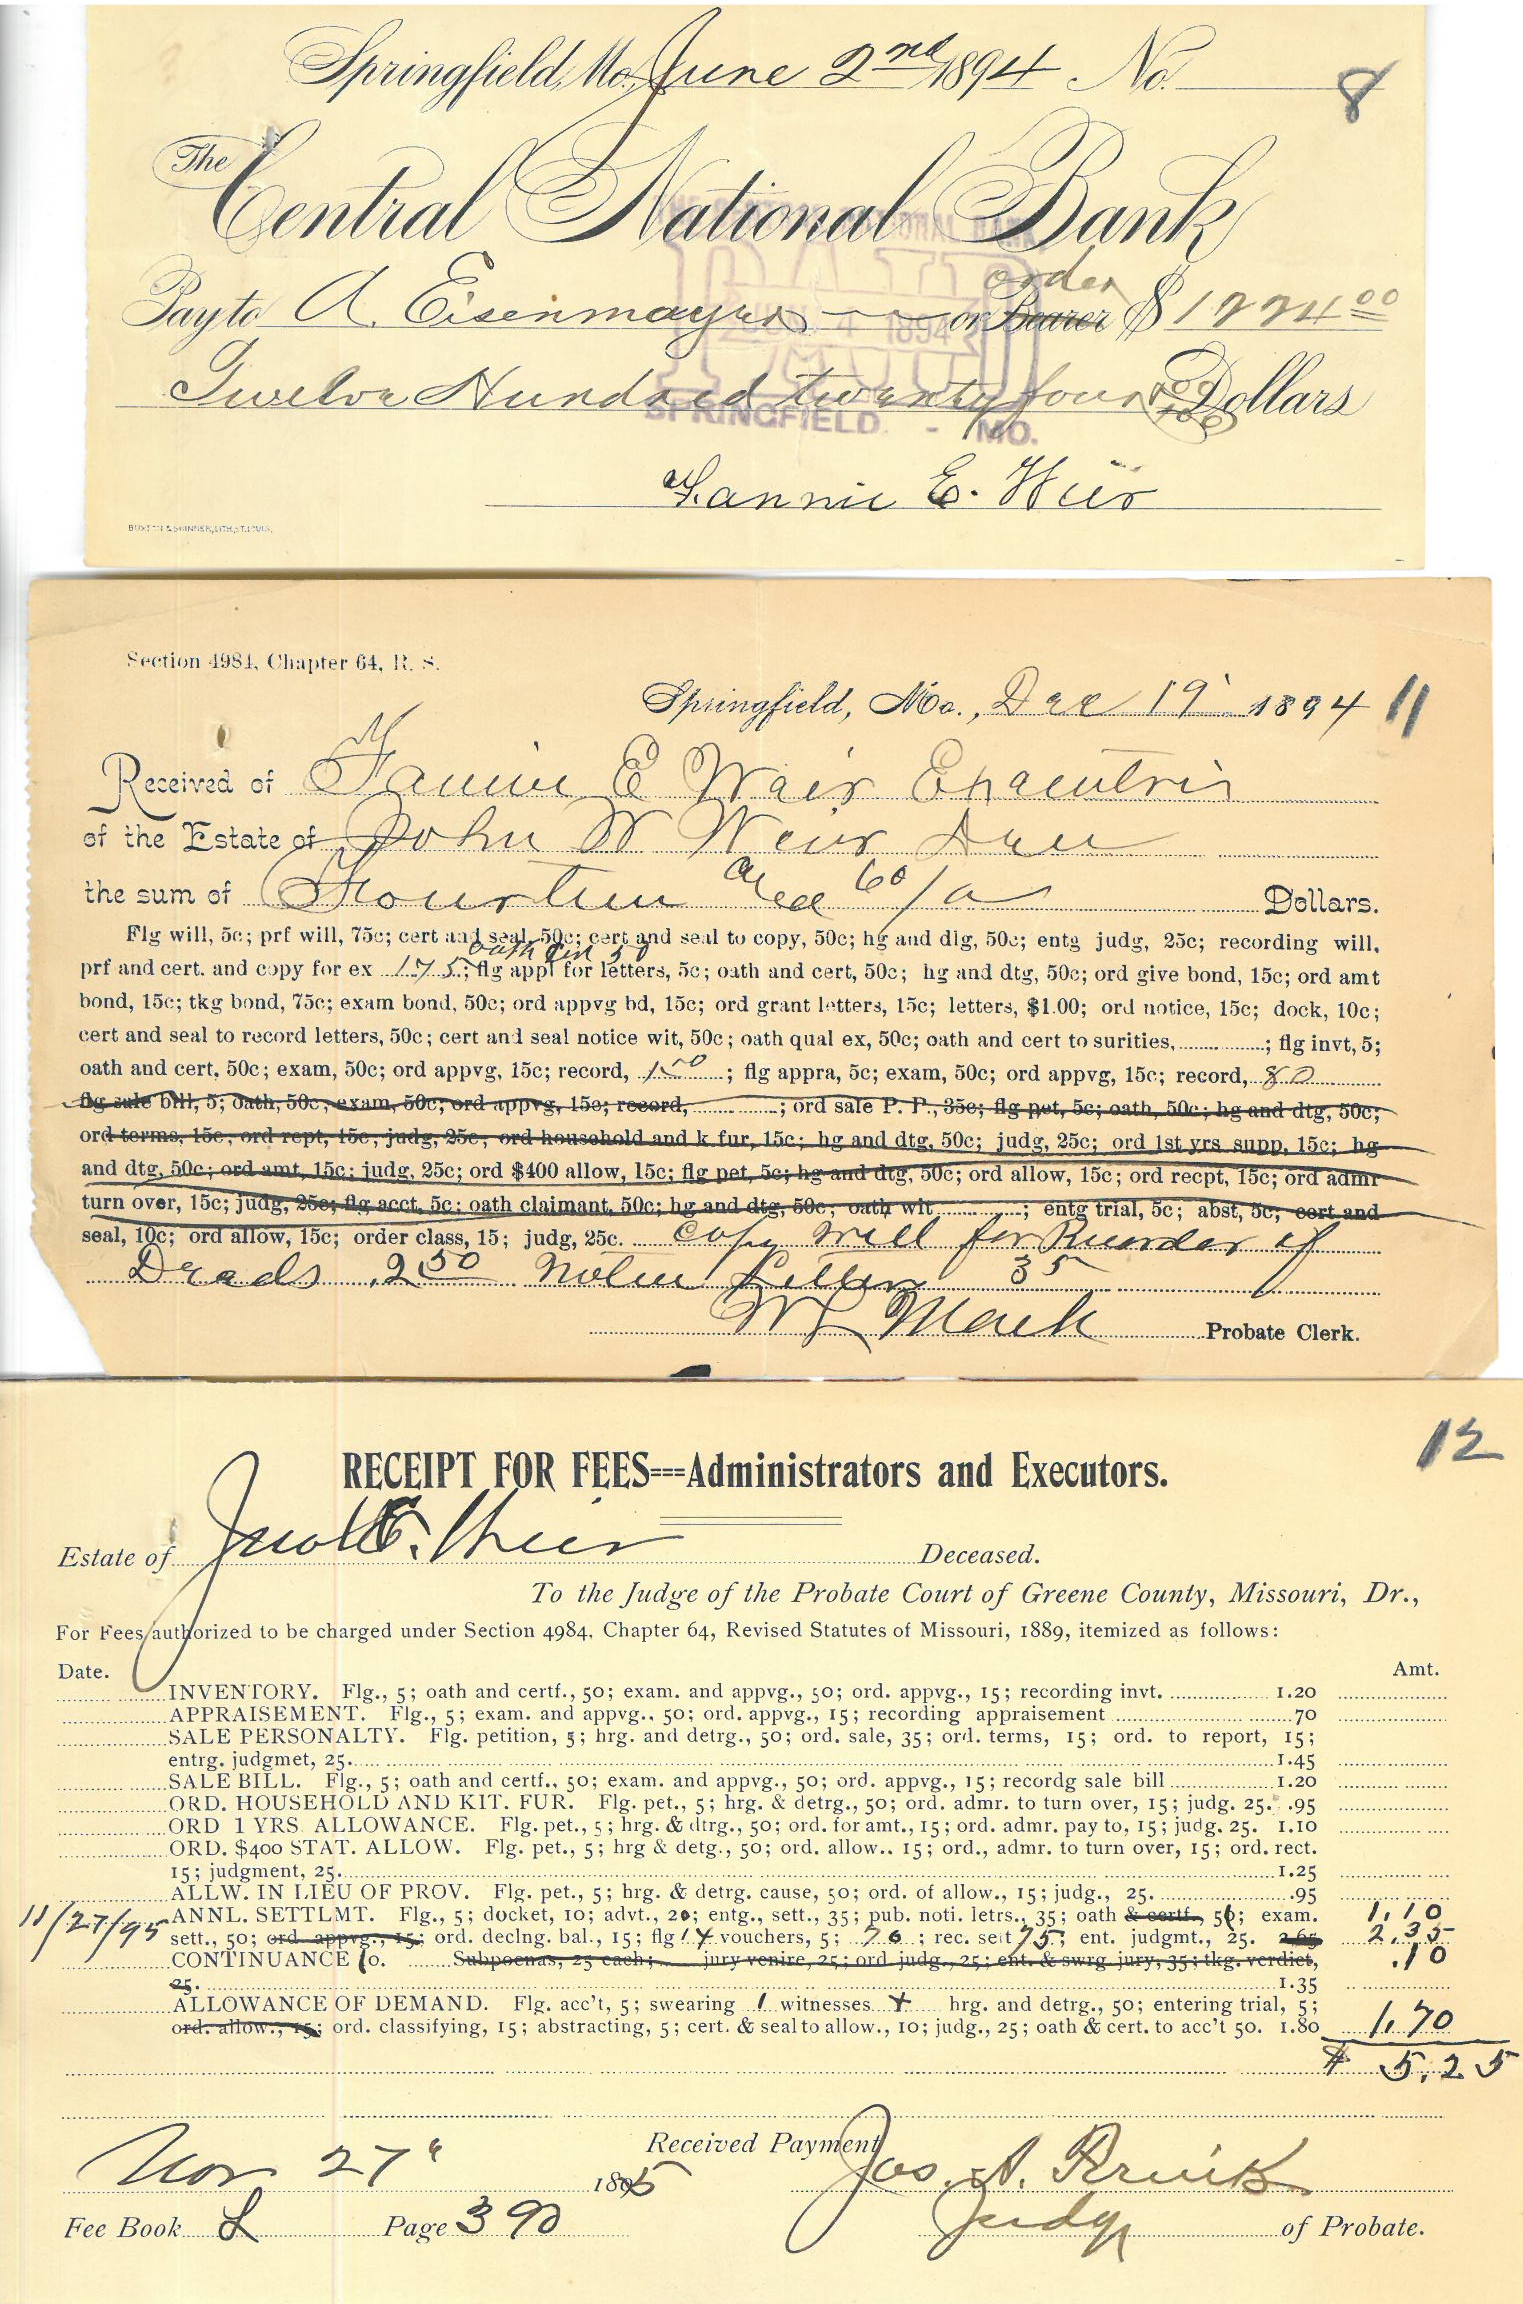 Springfield, Mo. June 2nd 1894 No. 8
The
Central National Bank
order
Pay to A. Eisenmayer or Bearer $ 1224 00
Twelve Hundred twenty four Dollars
PAID
4 1894
SPRINGFIELD - MO.
Fannie E. Weir
BUXTON & SKINNER, LITH, ST. LOUIS.
Section 4984, Chapter 64, R. S.
Springfield, Mo., Dec 19 1894 11
Received of Fannie E Weir Executrix
of the Estate of John W Weir Dec
the sum of Fourteen and 60/ Dollars.
Flg will, 5c; prf will, 75c; cert and seal, 50c; cert and seal to copy, 50c; hg and dlg, 50c; entg judg, 25c; recording will,
oath 50
prf and cert. and copy for ex 1 75; flg appl for letters, 5c; oath and cert, 50c; hg and dtg, 50c; ord give bond, 15c; ord amt
bond, 15c; tkg bond, 75c; exam bond, 50c; ord appvg bd, 15c; ord grant letters, 15c; letters, $1.00; ord notice, 15c; dock, 10c;
cert and seal to record letters, 50c; cert and seal notice wit, 50c; oath qual ex, 50c; oath and cert to surities, ; flg invt, 5;
oath and cert, 50c; exam, 50c; ord appvg, 15c; record, 1 50; flg appra, 5c; exam, 50c; ord appvg, 15c; record, 80
flg sale bill, 5; oath, 50c; exam, 50c; ord appvg, 15c; record, ; ord sale P. P., 35c; flg pet, 5c; oath, 50c; hg and dtg, 50c;
ord terms, 15c; ord rept, 15c; judg, 25c; ord household and k fur, 15c; hg and dtg, 50c; judg, 25c; ord 1st yrs supp, 15c; hg
and dtg, 50c; ord amt, 15c; judg, 25c; ord $400 allow, 15c; flg pet, 5c; hg and dtg, 50c; ord allow, 15c; ord recpt, 15c; ord admr
turn over, 15c; judg, 25c; flg acct, 5c; oath claimant, 50c; hg and dtg, 50c; oath wit ; entg trial, 5c; abst, 5c; cert and
seal, 10c; ord allow, 15c; order class, 15; judg, 25c. Copy will for Recorder of
Deeds 2 50 Notice Letters 35
Probate Clerk.
12
RECEIPT FOR FEES===Administrators and Executors.
Estate of Weir Deceased.
To the Judge of the Probate Court of Greene County, Missouri, Dr.,
For Fees authorized to be charged under Section 4984, Chapter 64, Revised Statutes of Missouri, 1889, itemized as follows:
Date. Amt.
INVENTORY. Flg., 5; oath and certf., 50; exam. and appvg., 50; ord. appvg., 15; recording invt. 1.20
APPRAISEMENT. Flg., 5; exam. and appvg.. 50; ord. appvg., 15; recording appraisement .70
SALE PERSONALTY. Flg. petition, 5; hrg. and detrg., 50; ord. sale, 35; ord. terms, 15; ord. to report, 15;
entrg. judgmet, 25. 1.45
SALE BILL. Flg., 5; oath and certf., 50; exam. and appvg., 50; ord. appvg., 15; recordg sale bill 1.20
ORD. HOUSEHOLD AND KIT. FUR. Flg. pet., 5; hrg. & detrg., 50; ord. admr. to turn over, 15; judg. 25. .95
ORD 1 YRS. ALLOWANCE. Flg. pet., 5; hrg. & dtrg., 50; ord. for amt., 15; ord. admr. pay to, 15; judg. 25. 1.10
ORD. $400 STAT. ALLOW. Flg. pet., 5; hrg & detg., 50; ord. allow.. 15; ord., admr. to turn over, 15; ord. rect.
15; judgment, 25. 1.25
ALLW. IN LIEU OF PROV. Flg. pet., 5; hrg. & detrg. cause, 50; ord. of allow., 15; judg., 25. .95
11/27/95 ANNL. SETTLMT. Flg., 5; docket, 10; advt., 20; entg., sett., 35; pub. noti. letrs., 35; oath & certf., 50; exam. 1.10
sett., 50; ord. appvg., 15; ord. declng. bal., 15; flg 14 vouchers, 5; 70; rec. sett 75; ent. judgmt., 25. 2.65 2.35
CONTINUANCE 10. Subpoenas, 25 each; jury venire, 25; ord. judg., 25; ent. & swrg. jury, 35; tkg. verdict, .10
25. 1.35
ALLOWANCE OF DEMAND. Flg. acc't, 5; swearing 1 witnesses hrg. and detrg., 50; entering trial, 5;
ord. allow., 15; ord. classifying, 15; abstracting, 5; cert. & seal to allow., 10; judg., 25; oath & cert. to acc't 50. 1.80 1.70
$ 5.25
Received Payment
Nov 27" 1895 Jos. A.
Fee Book L Page 390 Judge of Probate.